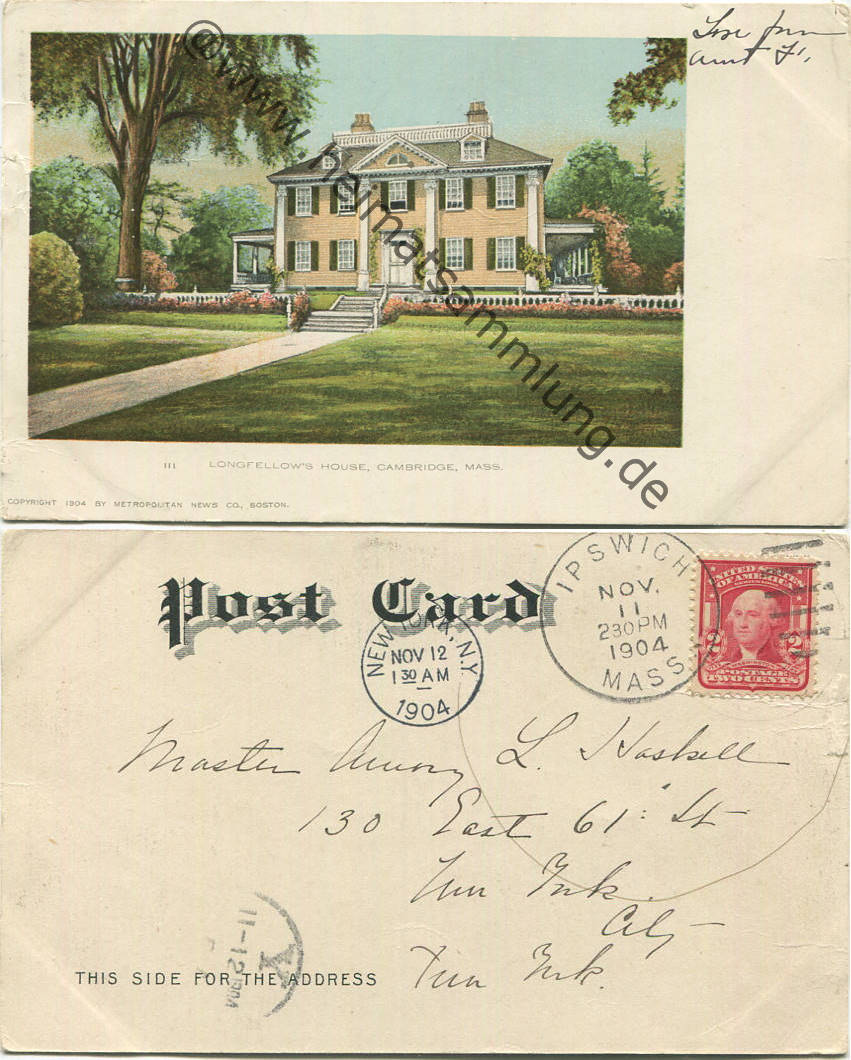 Love from
Aunt F.
© www.heimatsammlung.de
111 LONGFELLOW'S HOUSE, CAMBRIDGE, MASS.
COPYRIGHT 1904 BY METROPOLITAN NEWS CO., BOSTON.
Post Card
NEW YORK, N.Y.
NOV 12
1 30 AM
1904
IPSWICH
NOV.
11
230 PM
1904
MASS.
UNITED STATES
OF AMERICA
2 2
POSTAGE
TWO CENTS
Master Amory L. Haskell
130 East 61st St
New York
City
New York.
11-12
1904
THIS SIDE FOR THE ADDRESS